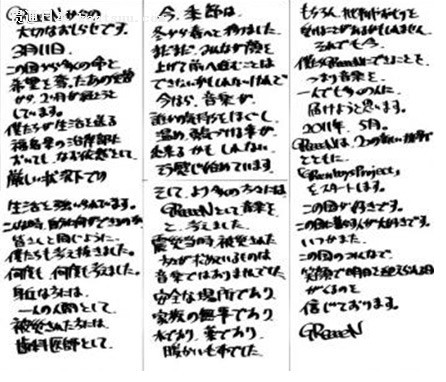 GReeeeNからの
大切なおしらせです。
3月11日。
この国から多くの命と
希望を奪ったあの災害
から、2ヶ月が経とうと
しています。
僕たちが生活を送る
福島県の沿岸部に
おいても、なお依然として
厳しい状況下での
生活を強いられています。
こんな時、自分に何ができるのか
皆さんと同じように、
僕たちも考え抜きました。
何度も、何度も考えました。
身近な方には、
一人の人間として、
被災された方には、
歯科医師として、
今、季節は、
冬から春へと移りました。
まだまだ、みんなが顔を
上げて前へ進むことは
できないかもしれないけれど
今なら、音楽が、
誰かの気持ちをほぐし、
温め、勇気づける事が
出来るかもしれない。
そう感じ始めています。
そして、より多くの方々には
GReeeeNとして音楽を
と、考えました。
震災当時、被災された
方々が求めているものは
音楽ではありませんでした。
安全な場所であり、
家族の無事であり、
水であり、薬であり、
暖かい毛布でした。
もちろん、批判やお叱りを
受けることがあるかもしれません。
それでも今。
僕たちGReeeeNにできることを、
つまり音楽を、
一人でも多くの人に
届けようと思います。
2011年、5月。
GReeeeNは、2つの新しい仲間
とともに、
GReenboysProject
をスタートします。
この国が好きです。
この国に暮らす人が大好きです。
いつかまた、
この国のみんなで、
笑顔で明日を迎えられる日
がくるのを
信じております。
GReeeeN